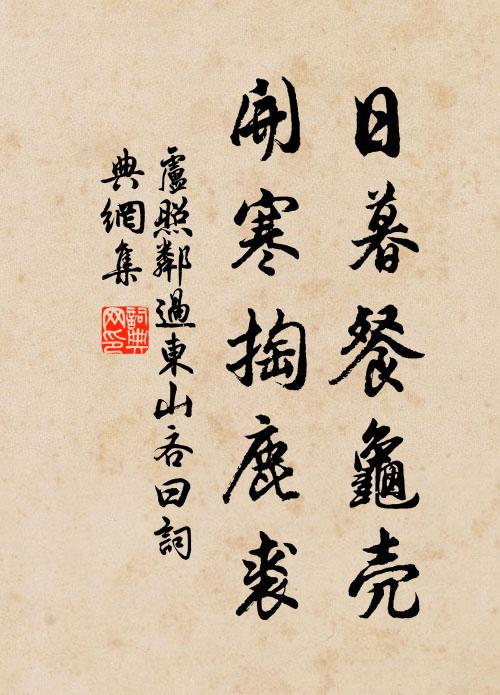 日暮餐龜壳
開寒掏鹿裘
盧照鄰過東山谷口詞
典網集
詞典
网印